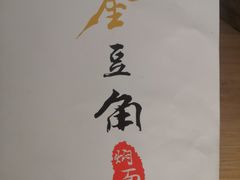 座豆角
焖面